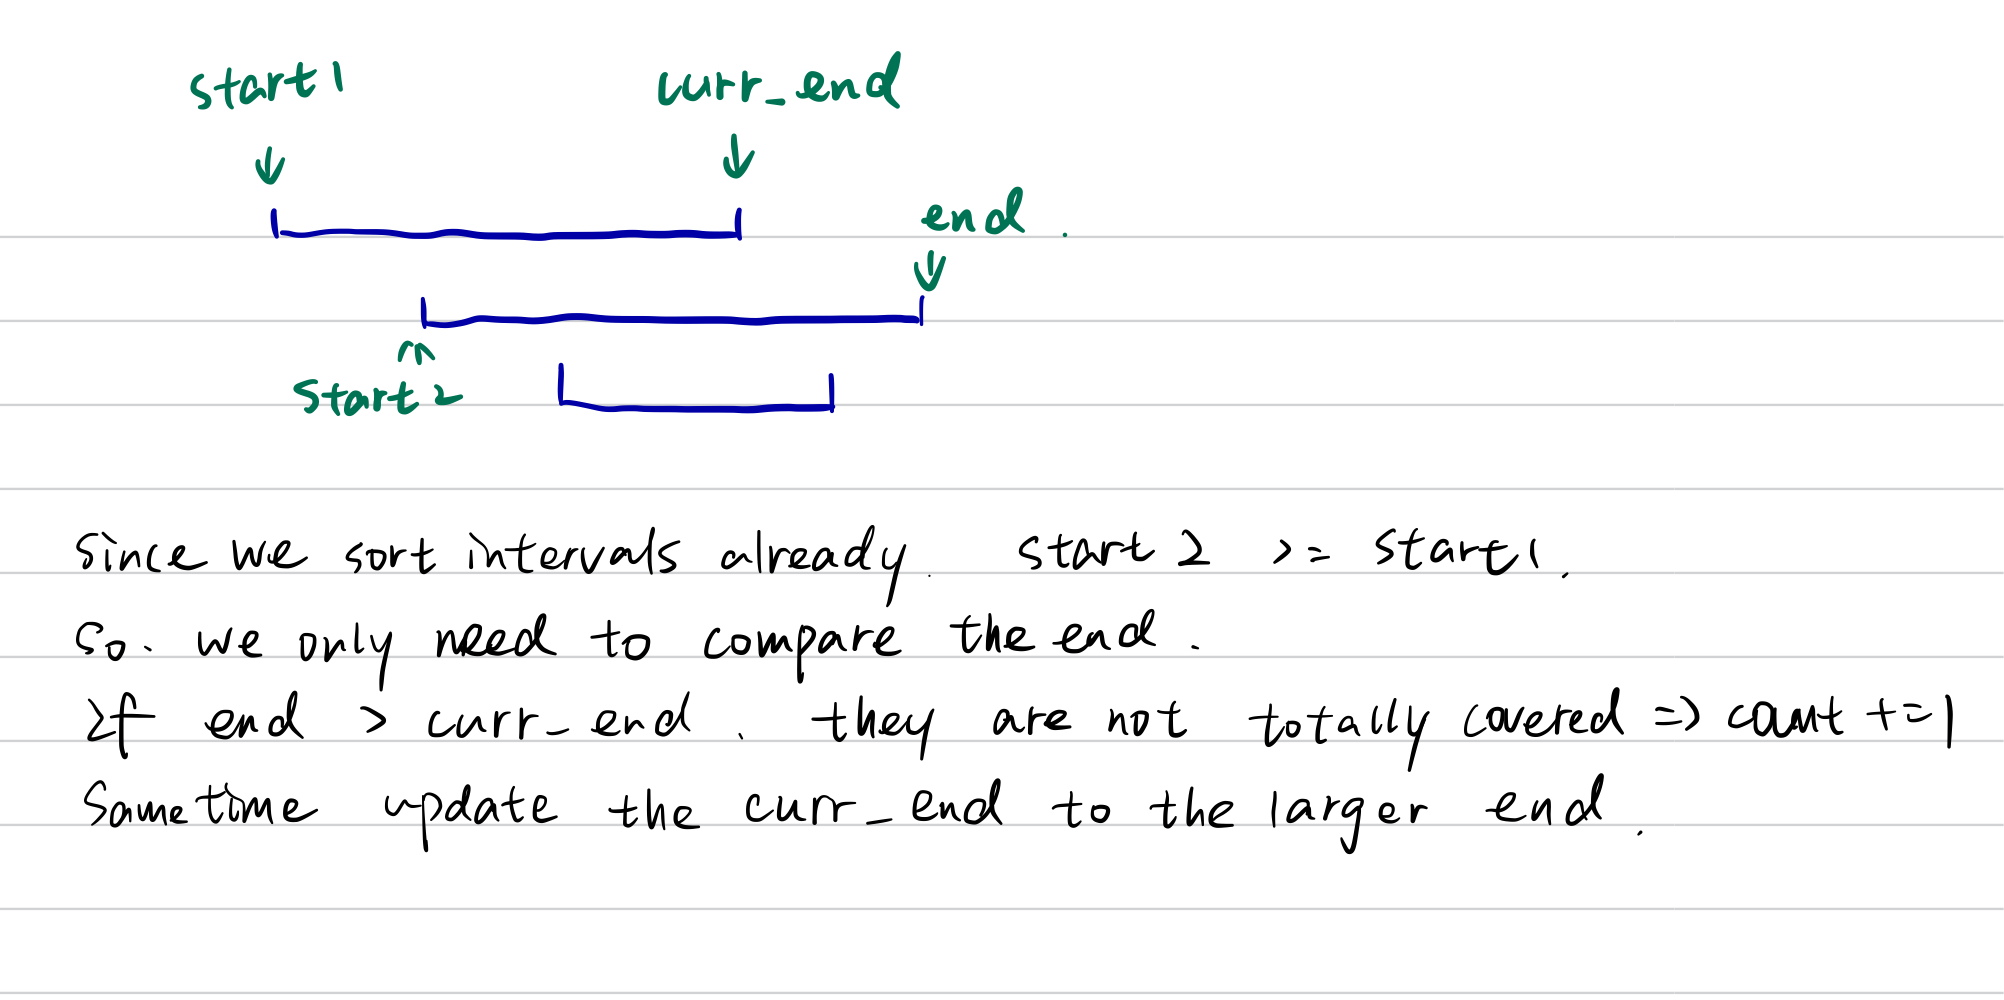 start1 curr_end
end.
start2
Since we sort intervals already. start2 >= start1.
So. we only need to compare the end.
If end > curr_end. they are not totally covered => count +=1
Sametime update the curr_end to the larger end.